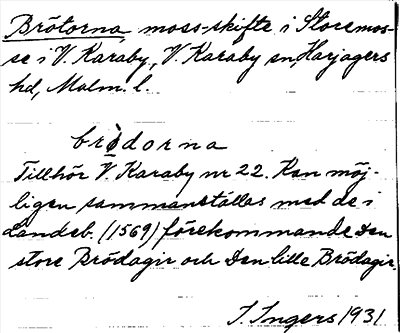 Brötorna, moss-skifte i Storemos-
se i V. Karaby, V. Karaby sn, Harjagers
hd, Malm. l.
brödorna
Tillhör V. Karaby nr 22. Kan möj-
ligen sammanställas med de i
Landeb. (1569) förekommande Den
store Brödagir och Den lille Brödagir.
I. Ingers 1931